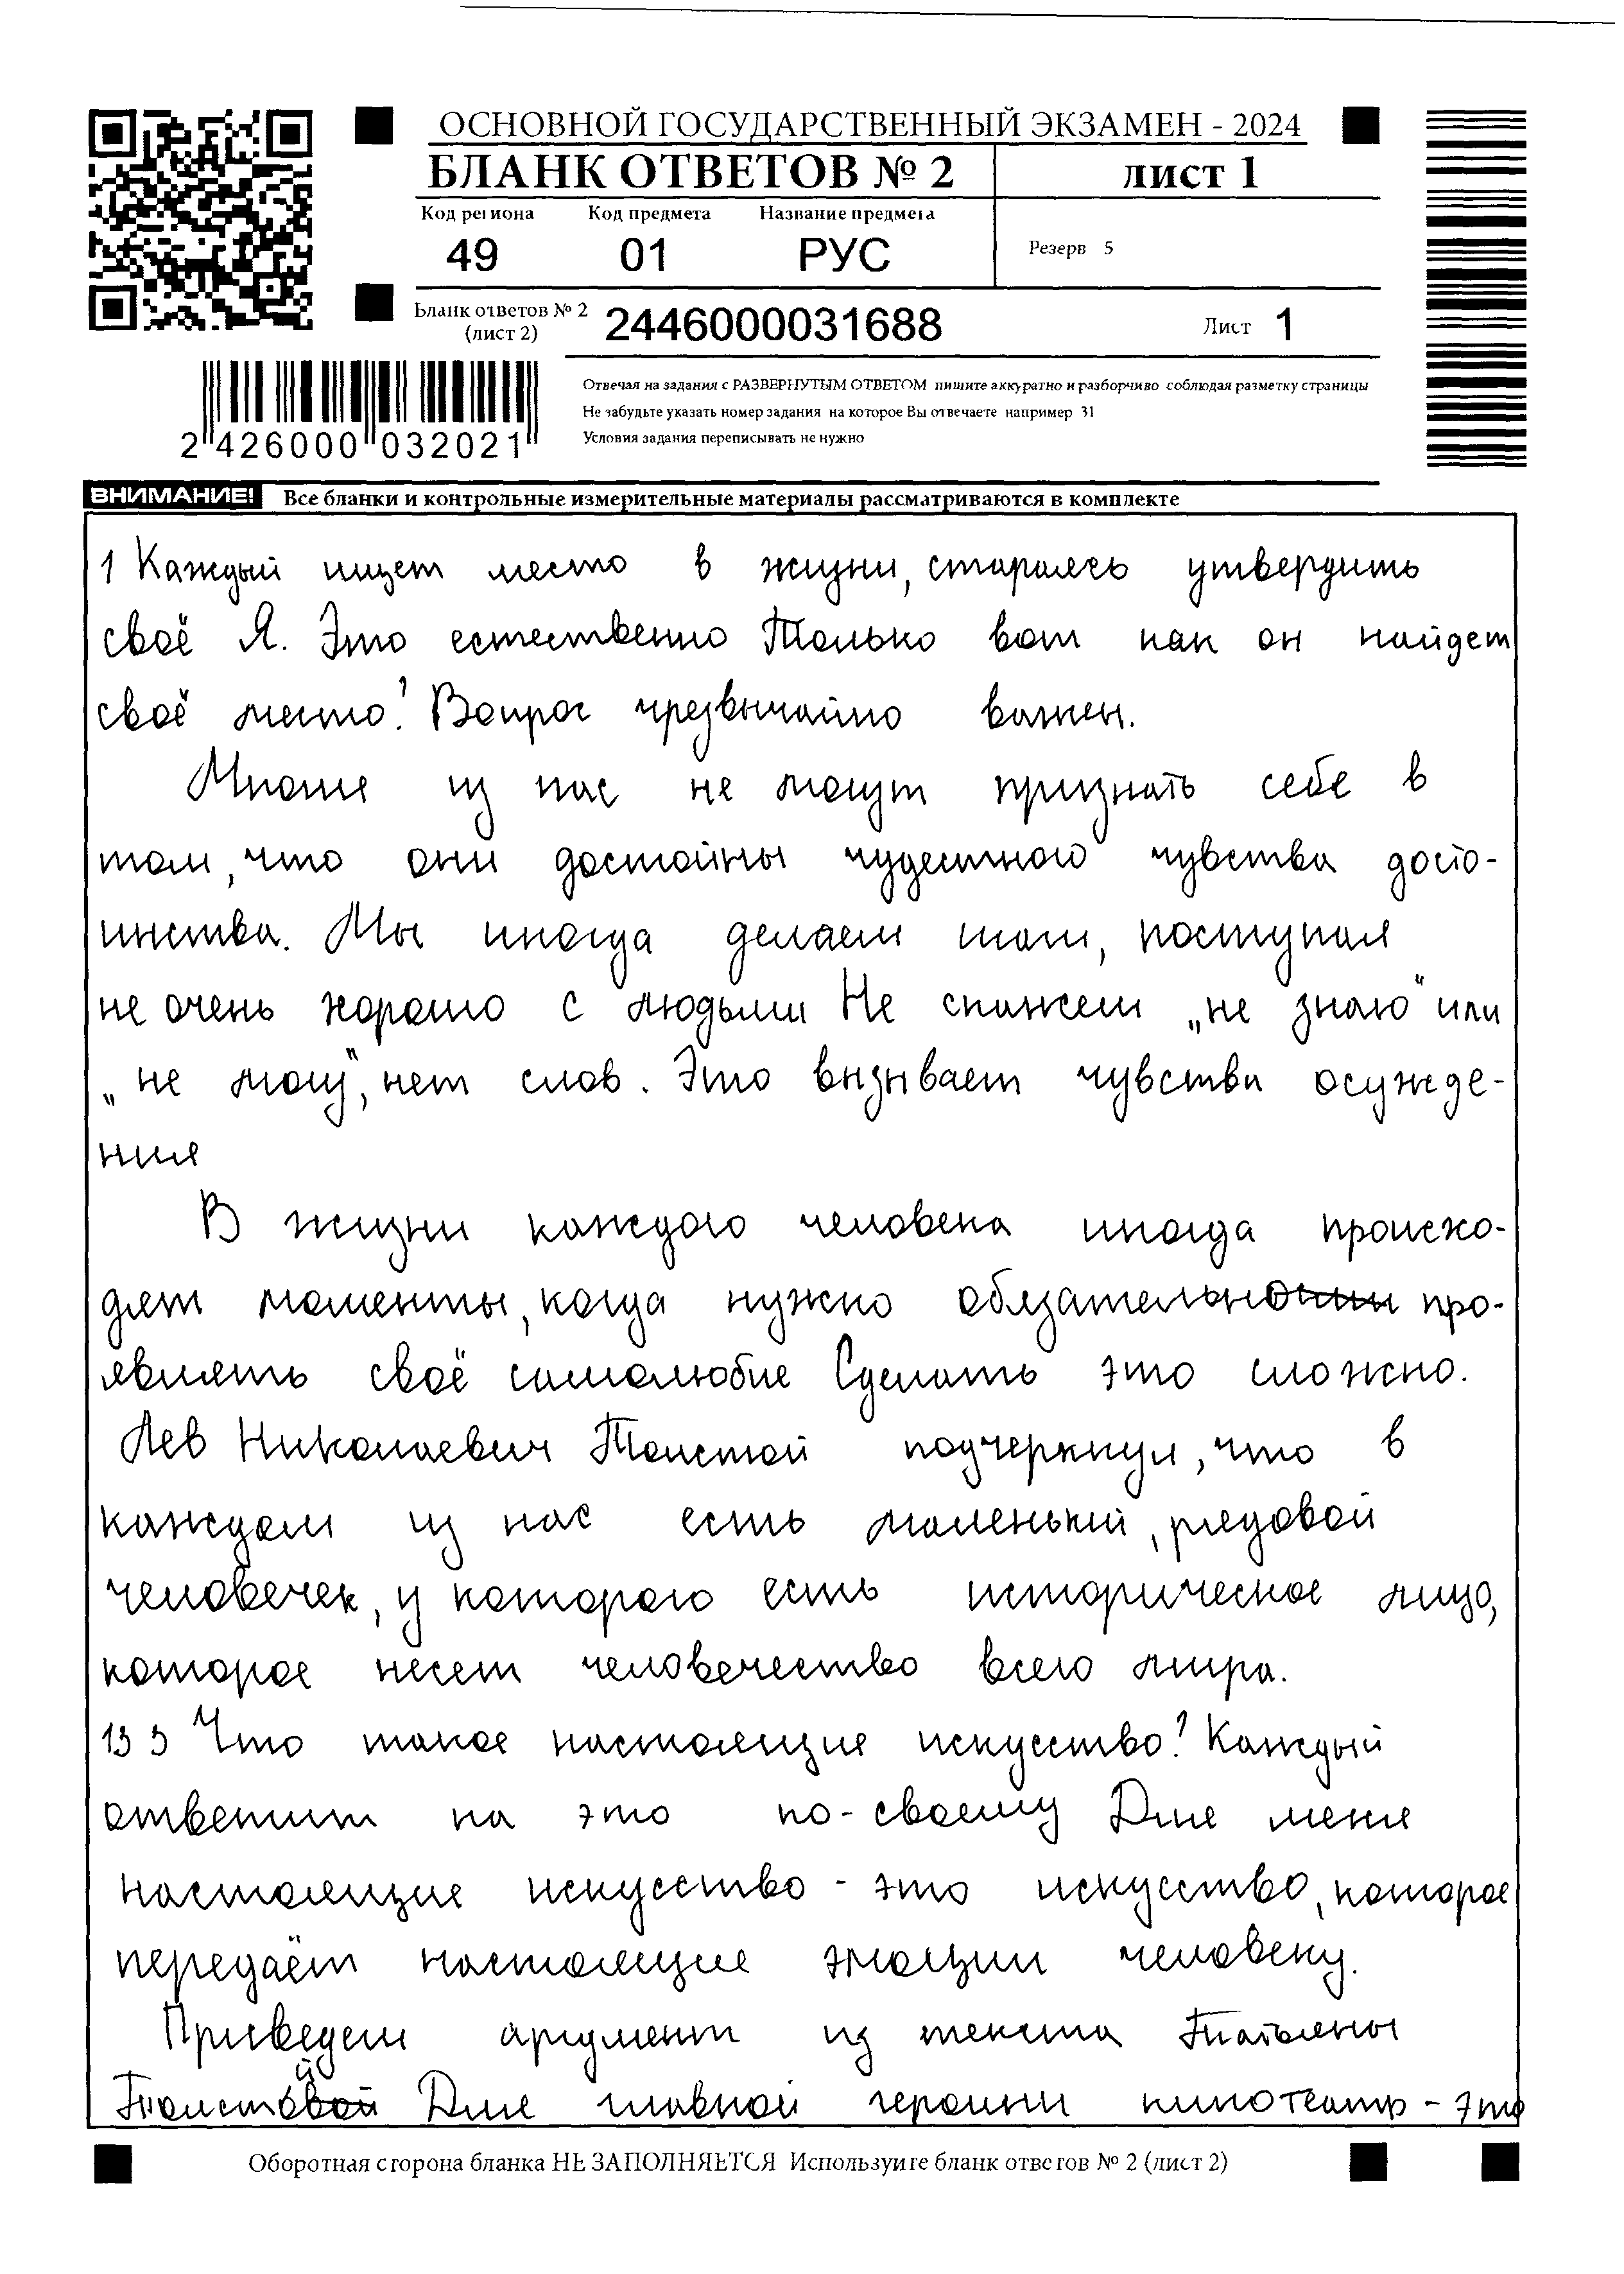 ОСНОВНОЙ ГОСУДАРСТВЕННЫЙ ЭКЗАМЕН - 2024
БЛАНК ОТВЕТОВ № 2 лист 1
Код региона Код предмета Название предмета
49 01 РУС Резерв 5
Бланк ответов № 2
(лист 2) 2446000031688 Лист 1
Отвечая на задания с РАЗВЕРНУТЫМ ОТВЕТОМ пишите аккуратно и разборчиво соблюдая разметку страницы
Не забудьте указать номер задания на которое Вы отвечаете например 31
Условия задания переписывать не нужно
2 426000 032021
ВНИМАНИЕ! Все бланки и контрольные измерительные материалы рассматриваются в комплекте
1 Каждый ищет место в жизни, стараясь утвердить
своё Я. Это естественно Только вот как он найдет
своё место? Вопрос чрезвычайно важен.
Многие из нас не могут признать себе в
том, что они достойны чудестного чувства досто-
инства. Мы иногда делаем шаги, поступая
не очень хорошо с людьми Не скажем „не знаю" или
„не могу", нет слов. Это вызывает чувства осужде-
ния
В жизни каждого человека иногда происхо-
дят моменты, когда нужно обязательно про-
являть своё самолюбие Сделать это сложно.
Лев Николаевич Толстой подчеркнул, что в
каждом из нас есть маленький, рядовой
человечек, у которого есть историческое лицо,
которое несет человечество всего мира.
13 3 Что такое настоящие искусство? Каждый
ответит на это по-своему Для меня
настоящие искусство - это искусство, которое
передаёт настоящие эмоции человеку.
Приведем аргумент из текста Татьяны
Толстой Для главной героини кинотеатр - это
Оборотная сторона бланка НЕ ЗАПОЛНЯЕТСЯ Используйте бланк ответов № 2 (лист 2)